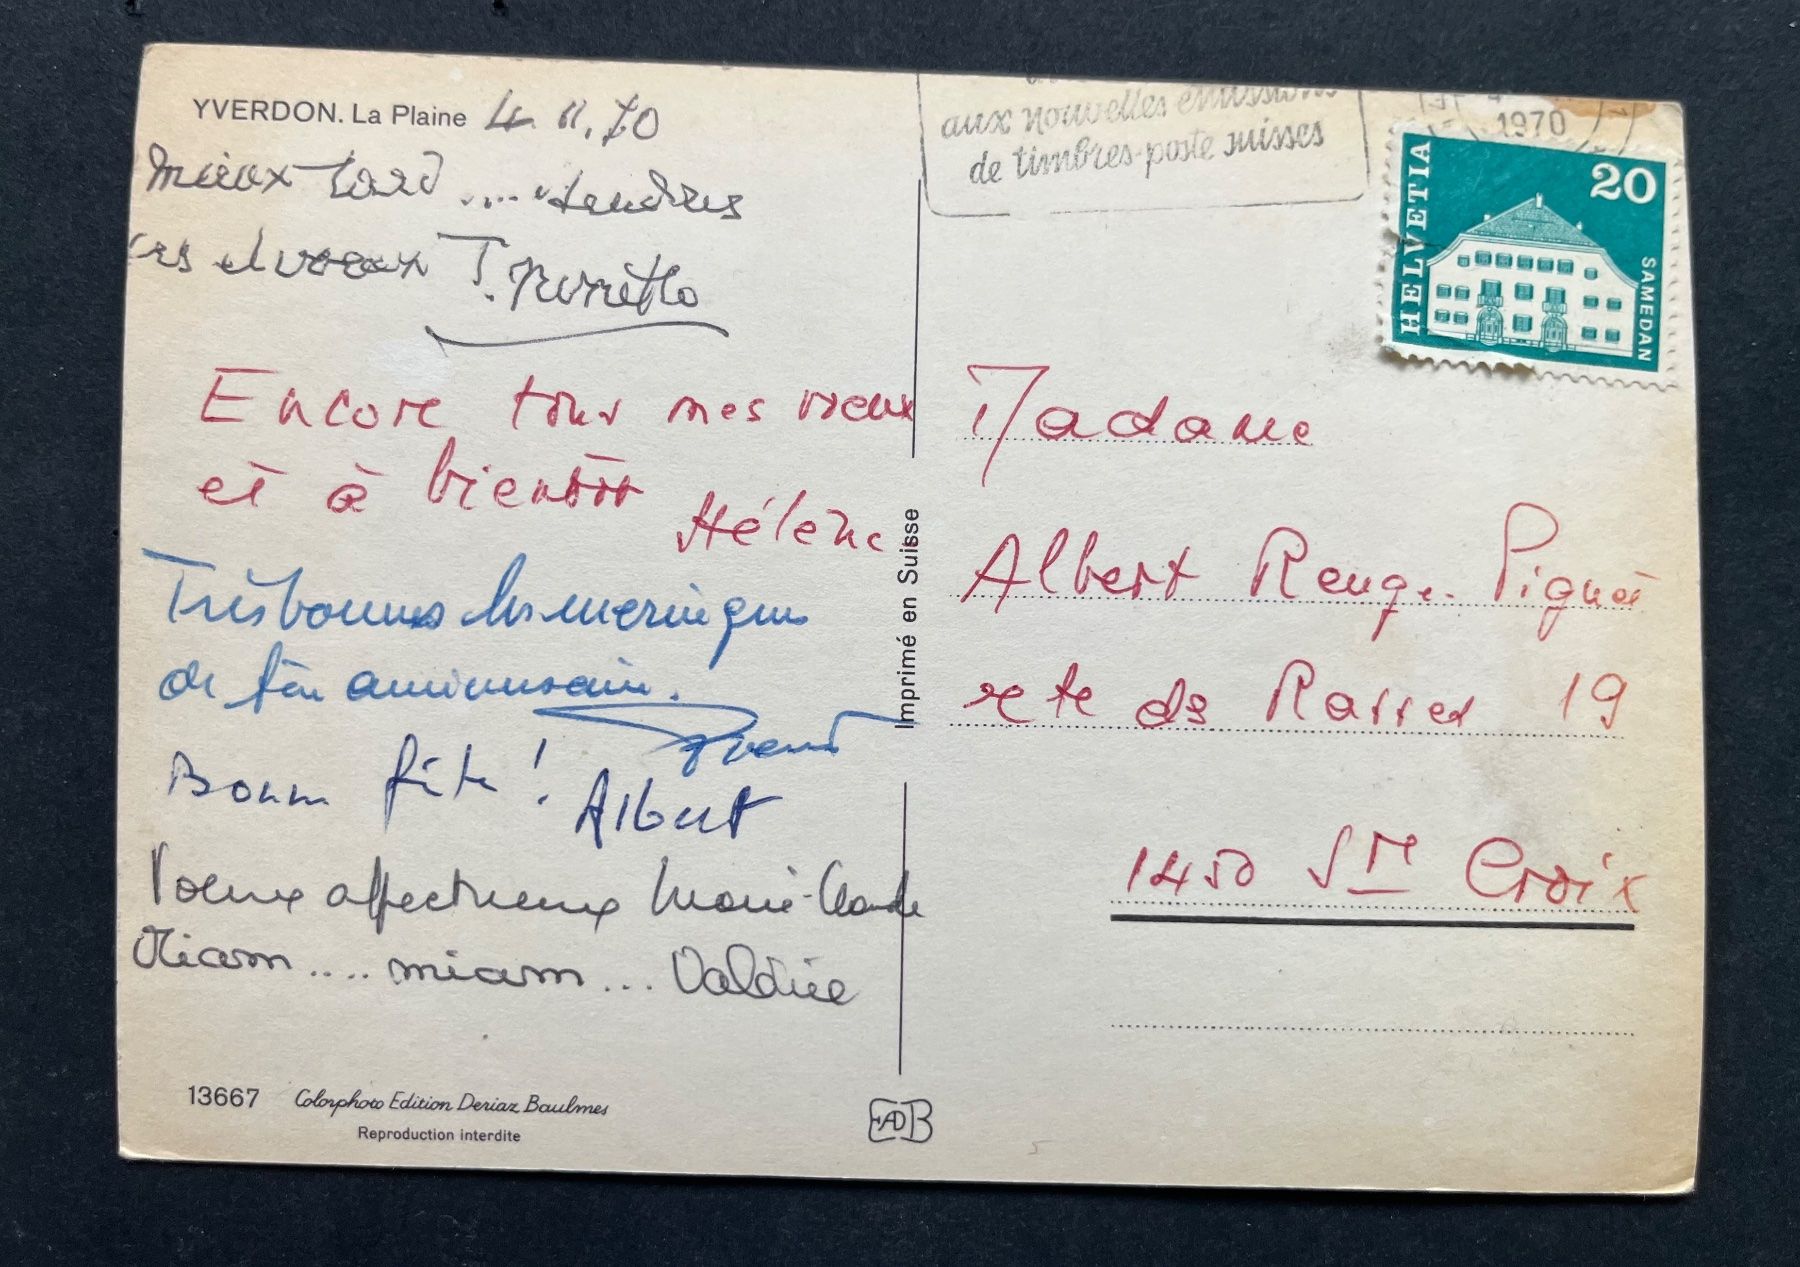 YVERDON. La Plaine 4. 11. 70
Mieux tard .... tendres
et voeux T.
Encore tous mes voeux
et à bientôt Hélène
Très bonnes les meringues
de ton anniversaire.
Bonne fête ! Albert
Voeux affectueux Marie-Claude
Miam .... miam ... Valdice
13667 Colorphoto Edition Deriaz Baulmes
Reproduction interdite
Imprimé en Suisse
EADB
aux nouvelles émissions
de timbres-poste suisses
1970
HELVETIA
20
SAMEDAN
Madame
Albert Reuge. Piguet
rte des Rasses 19
1450 Ste Croix